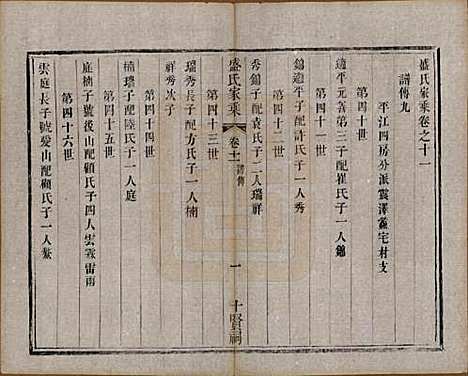 盛氏家乘卷之十一
譜傳九
平江四房分派震澤蠡宅村支
第四十世
適平元善第三子配崔氏子一人錦
第四十一世
錦適平子配許氏子一人秀
第四十二世
秀錦子配袁氏子二人瑞祥
盛氏家乘
卷十一 譜傳
一
十賢祠
第四十三世
瑞秀長子配方氏子一人楠
祥秀次子
第四十四世
楠瑞子配陸氏子一人庭
第四十五世
庭楠子號後山配顧氏子四人雲霖雷雨
第四十六世
雲庭長子號愛山配顧氏子一人鰲